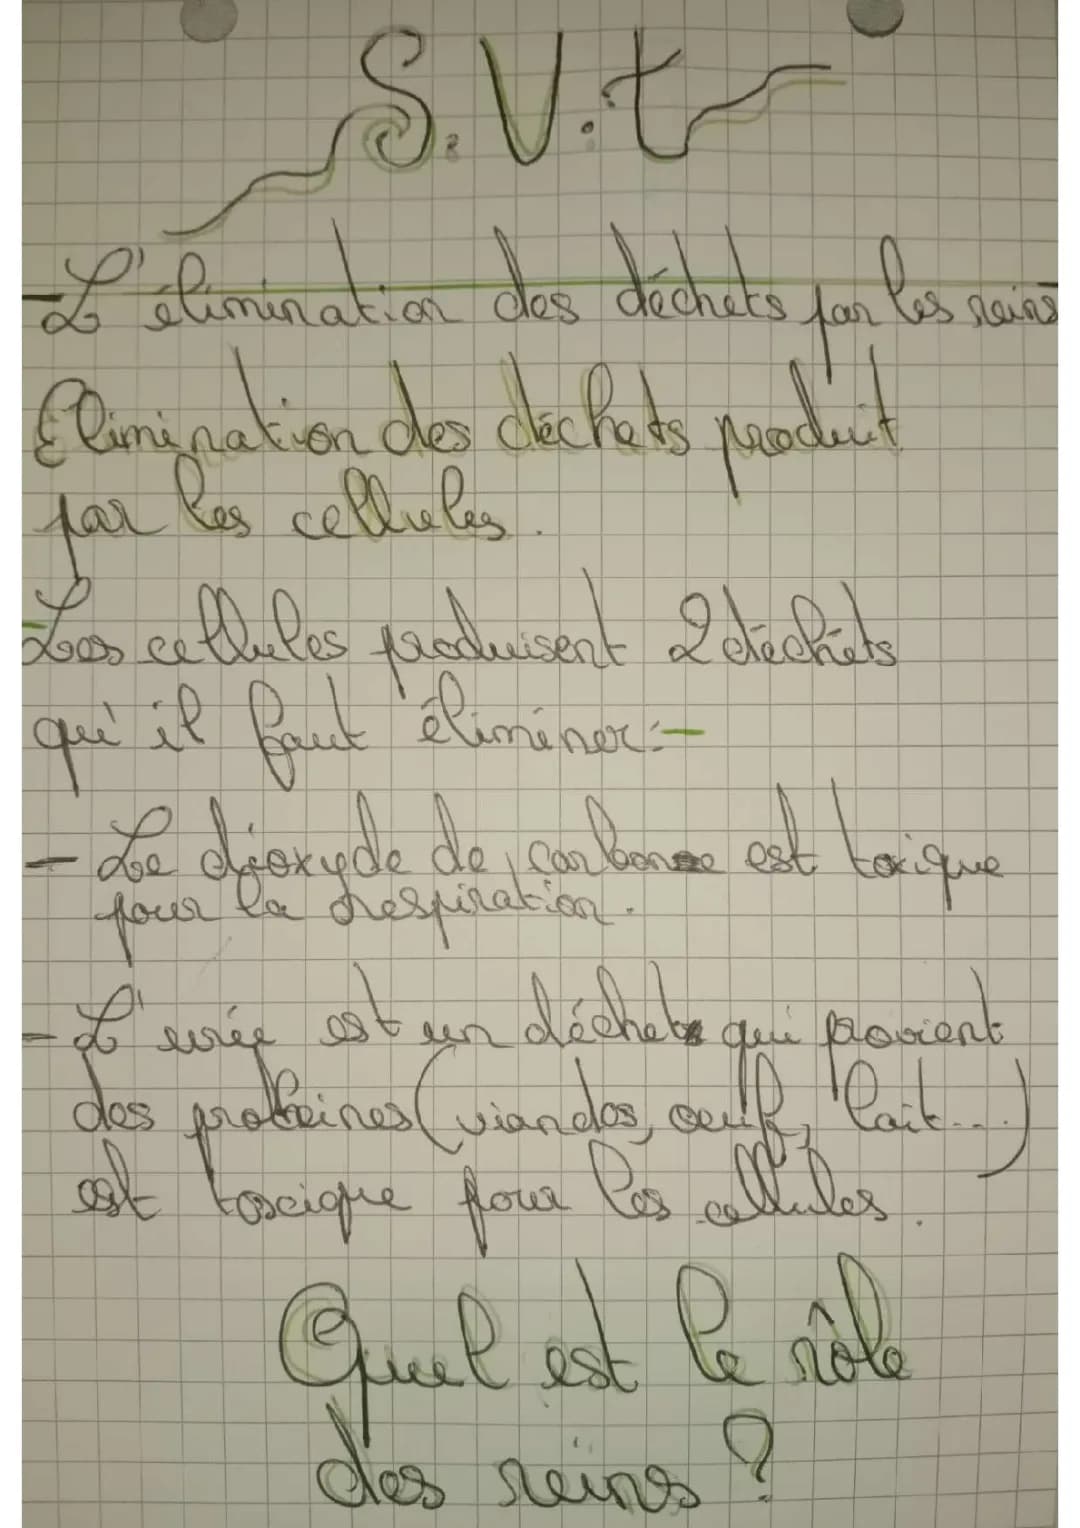 S.V.t
- L'élimination des déchets par les reins
Elimination des déchets produit
par les cellules.
Les cellules produisent 2 déchets
qu'il faut éliminer:-
- Le dioxyde de carbone est toxique
pour la respiration.
- L'urée est un déchet qui provient
des proteines (viandes, oeufs, lait...)
est toxique pour les cellules.
Quel est le rôle
des reins ?